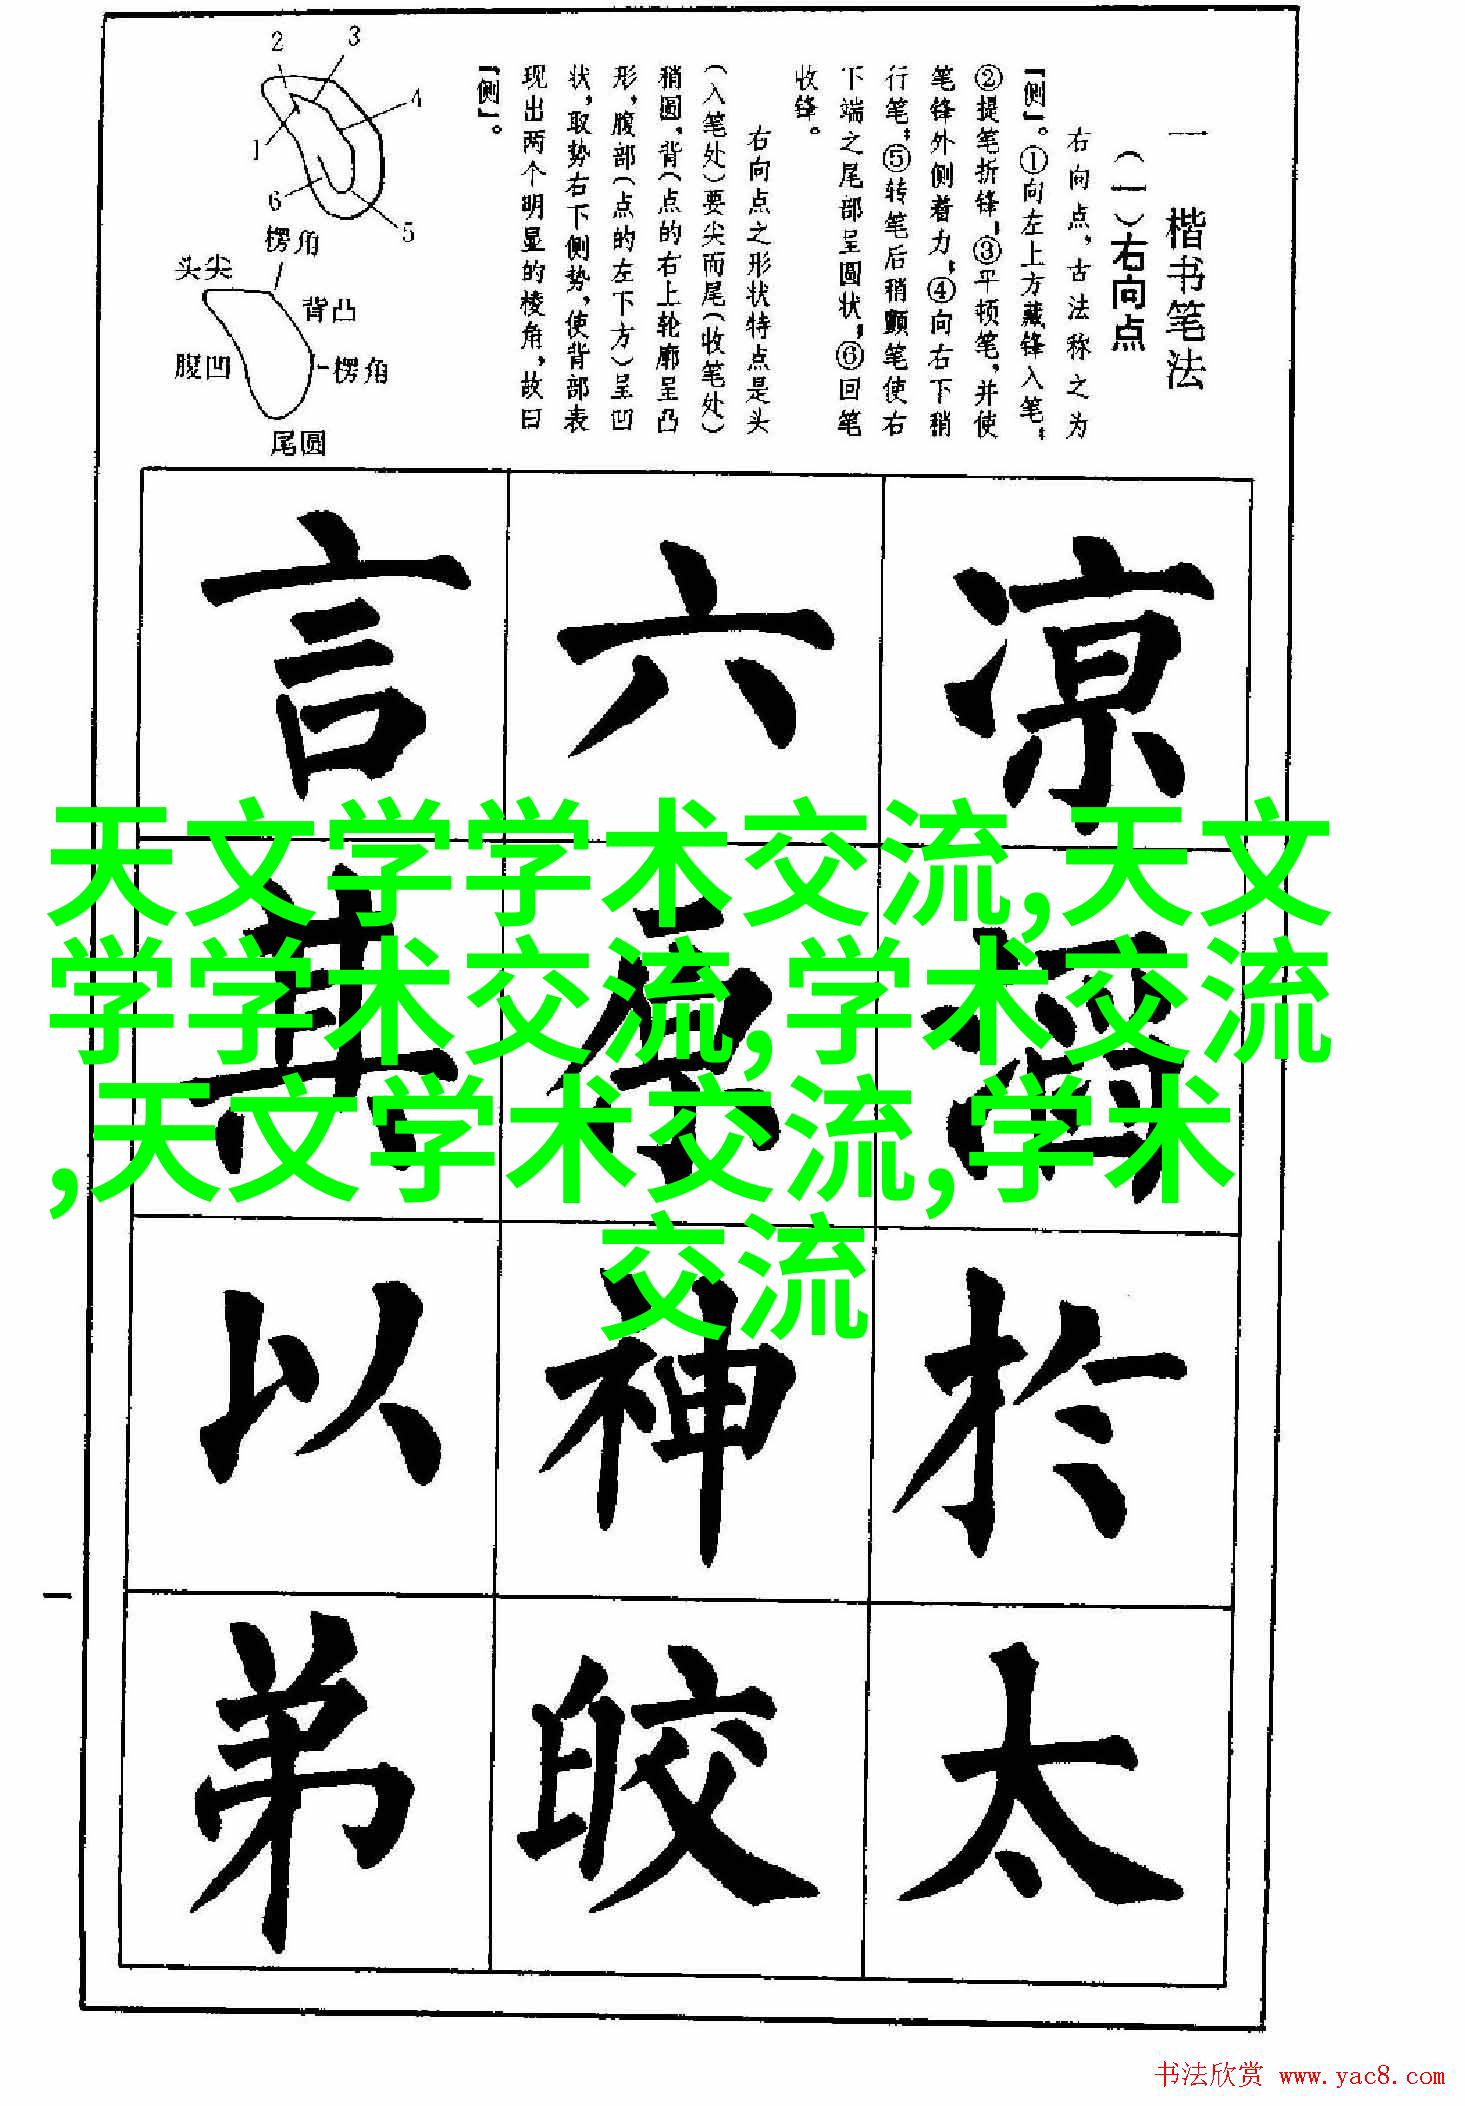 一 楷书笔法
（一）右向点
右向点，古法称之为
『侧』。①向左上方藏锋入笔；
②提笔折锋；③平顿笔，并使
笔锋外侧着力；④向右下稍
行笔；⑤转笔后稍颤笔使右
下端之尾部呈圆状；⑥回笔
收锋。
右向点之形状特点是头
（入笔处）要尖而尾（收笔处）
稍圆，背（点的右上轮廓呈凸
形，腹部（点的左下方）呈凹
状，取势右下侧势，使背部表
现出两个明显的棱角，故曰
『侧』。
2 3
4
1
6
5
楞角
头尖
背凸
腹凹
楞角
尾圆
言 六 凉
天文学学术交流,天文
学学术交流,学术交流
,天文学术交流,学术
交流
以 神 於
弟 皎 太
一
书法欣赏 www.yac8.com